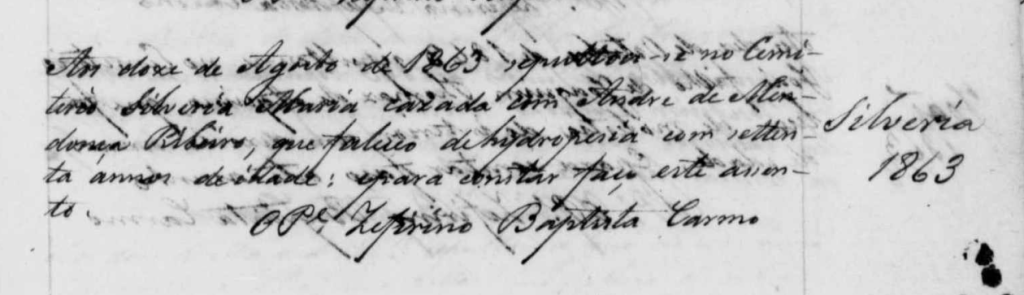 Aos doze de Agosto de 1863 sepultou-se no Cemi-
terio Silveria Maria cazada com Andre de Men-
donça Ribeiro, que faleceo de hydropesia com setten-
ta annos de idade: epara constar faço este assen-
to.
O Pe. Zeferino Baptista Carmo
Silveria
1863